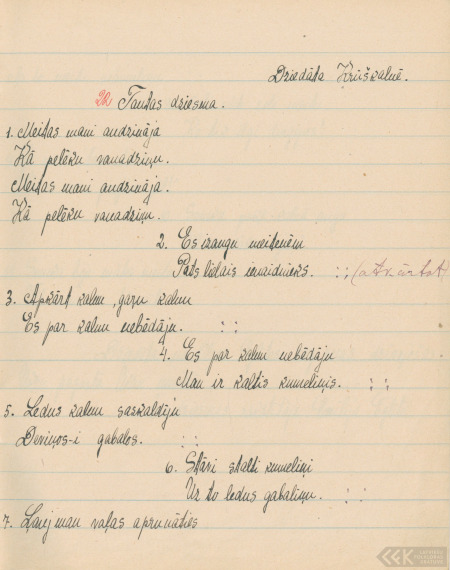 Dziedāta Krūškalnē.
20 Tautas dziesma.
1. Meitas mani audzināja
Kā pelēku vanadziņu.
Meitas mani audzināja.
Kā pelēku vanadziņu.
2. Es izaugu meitenēm
Pats lielais ienaidnieks. : : (atkārtot)
3. Apkārt kalnu, garu kalnu
Es par kalnu nebēdāju. : :
4. Es par kalnu nebēdāju
Man ir kaltis kumeliņis. : :
5. Ledus kalnu saskaldīju
Deviņos-i gabalos. : :
6. Stāvi stalti kumeliņi
Uz to ledus gabaliņu. : :
7. Ļauj man vaļas aprunāties
LFK